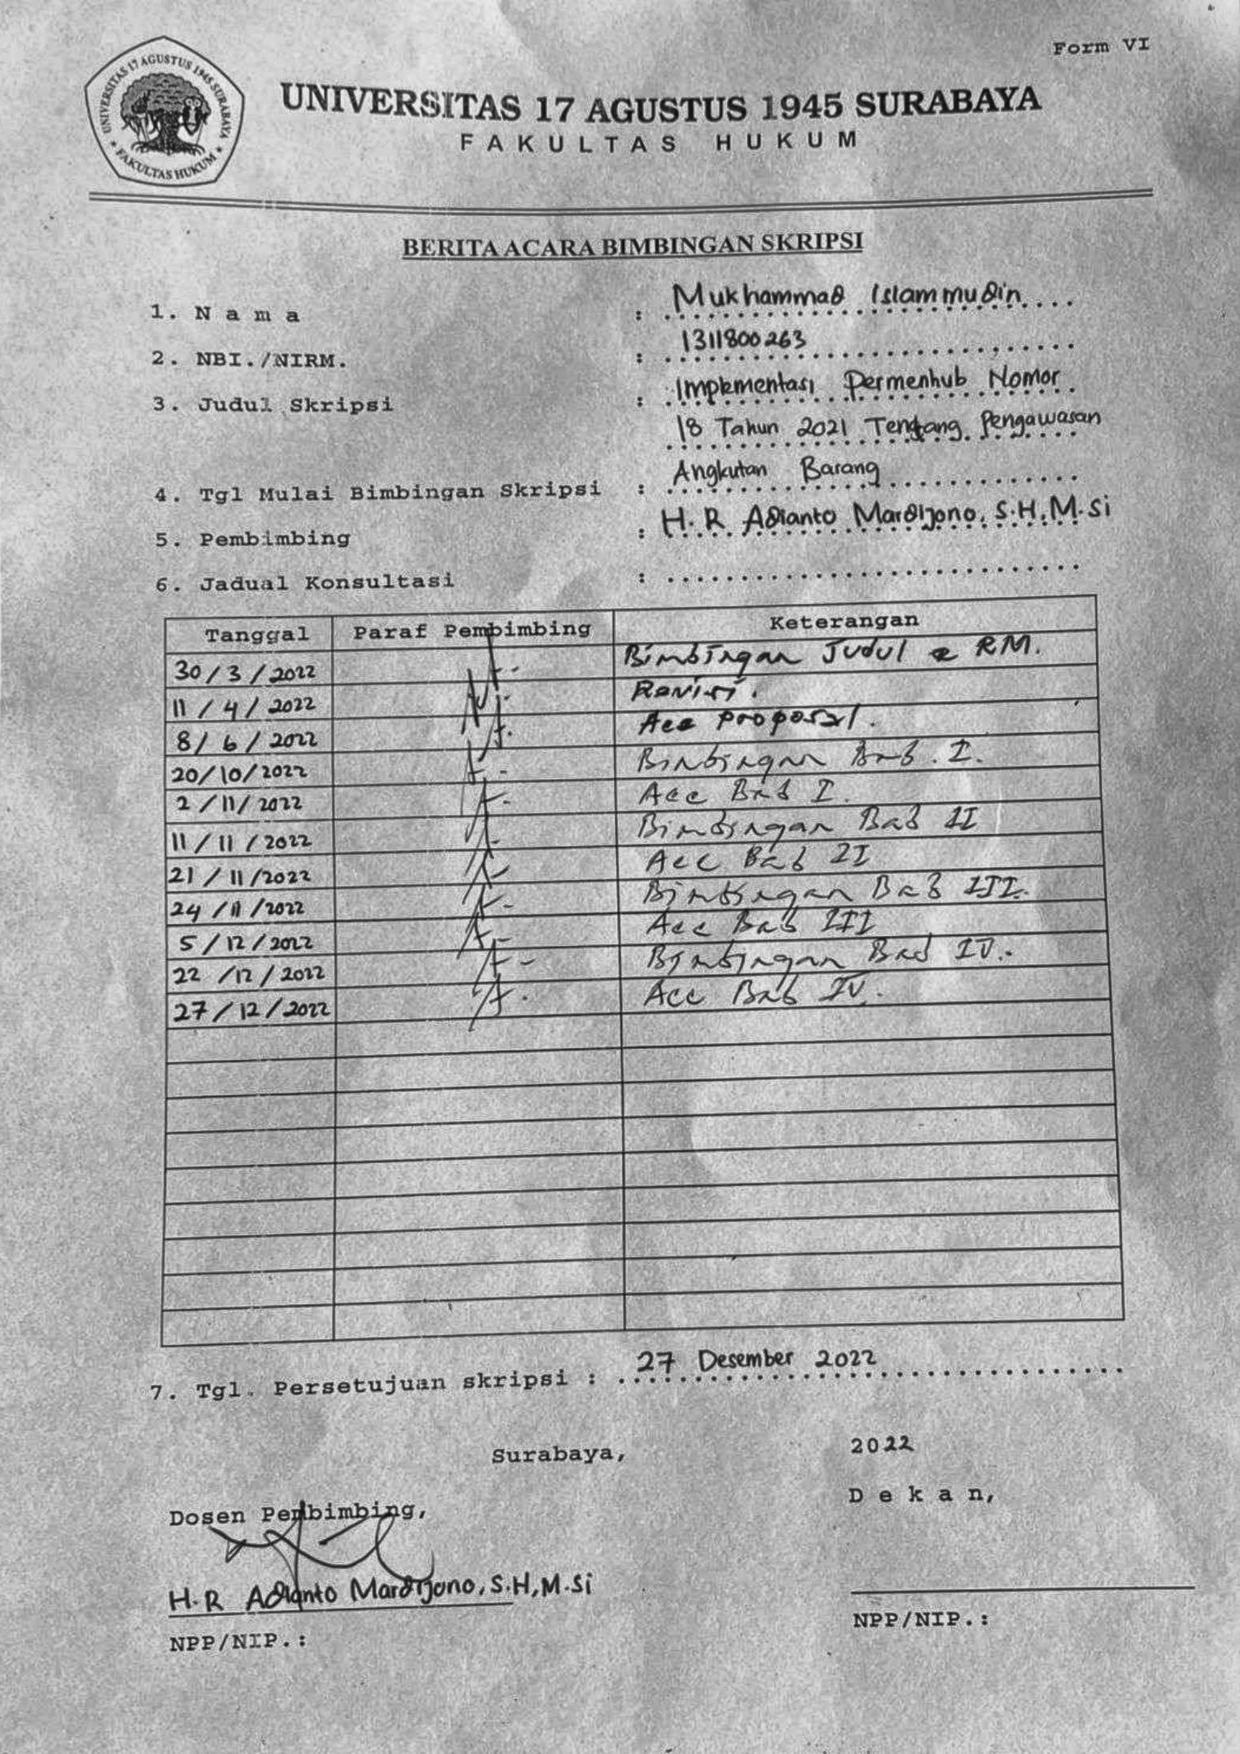 Form VI
UNIVERSITAS 17 AGUSTUS 1945 SURABAYA
FAKULTAS HUKUM
UNIVERSITAS 17 AGUSTUS 1945 SURABAYA
FAKULTAS HUKUM
BERITA ACARA BIMBINGAN SKRIPSI
1. N a m a : Mukhammad Islammudin
2. NBI./NIRM. : 1311800263
3. Judul Skripsi : Implementasi Permenhub Nomor
18 Tahun 2021 Tentang Pengawasan
Angkutan Barang
4. Tgl Mulai Bimbingan Skripsi :
5. Pembimbing : H. R. Adianto Mardijono, S.H, M.Si
6. Jadual Konsultasi :
Tanggal Paraf Pembimbing Keterangan
30/3/2022 Bimbingan Judul & RM.
11/4/2022 Revisi.
8/6/2022 Acc Proposal.
20/10/2022 Bimbingan Bab. I.
2/11/2022 Acc Bab I.
11/11/2022 Bimbingan Bab II
21/11/2022 Acc Bab II
24/11/2022 Bimbingan Bab III.
5/12/2022 Acc Bab III
22/12/2022 Bimbingan Bab IV.
27/12/2022 Acc Bab IV.
7. Tgl. Persetujuan skripsi : 27 Desember 2022
Surabaya, 2022
Dosen Pembimbing, D e k a n,
H. R Adianto Mardijono, S.H, M.Si
NPP/NIP.: NPP/NIP.: